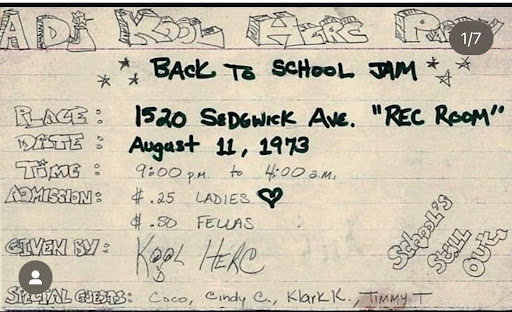 A DJ KOOL HERC PARTY
1/7
BACK TO SCHOOL JAM
PLACE: 1520 SEDGWICK AVE. "REC ROOM"
DATE: August 11, 1973
TIME: 9:00 p.m. to 4:00 a.m.
ADMISSION: $.25 LADIES ♡
$.50 FELLAS
GIVEN BY: KOOL HERC
SCHOOL'S STILL OUT
SPECIAL GUESTS: Coco, Cindy C., Klark K., Timmy T